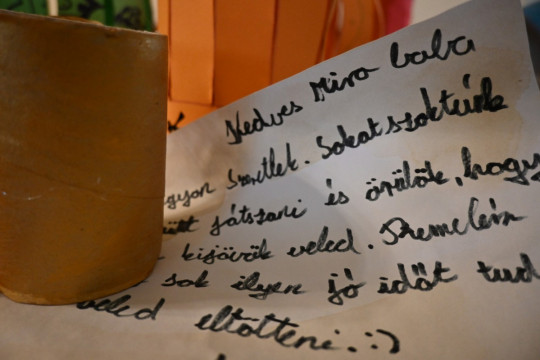 Kedves Mira baba
agyon Szeretlek. Sokat szoktunk
ütt játszani és örülök, hogy
kijövök veled. Remélem
sok ilyen jó időt tud
veled eltölteni. :)